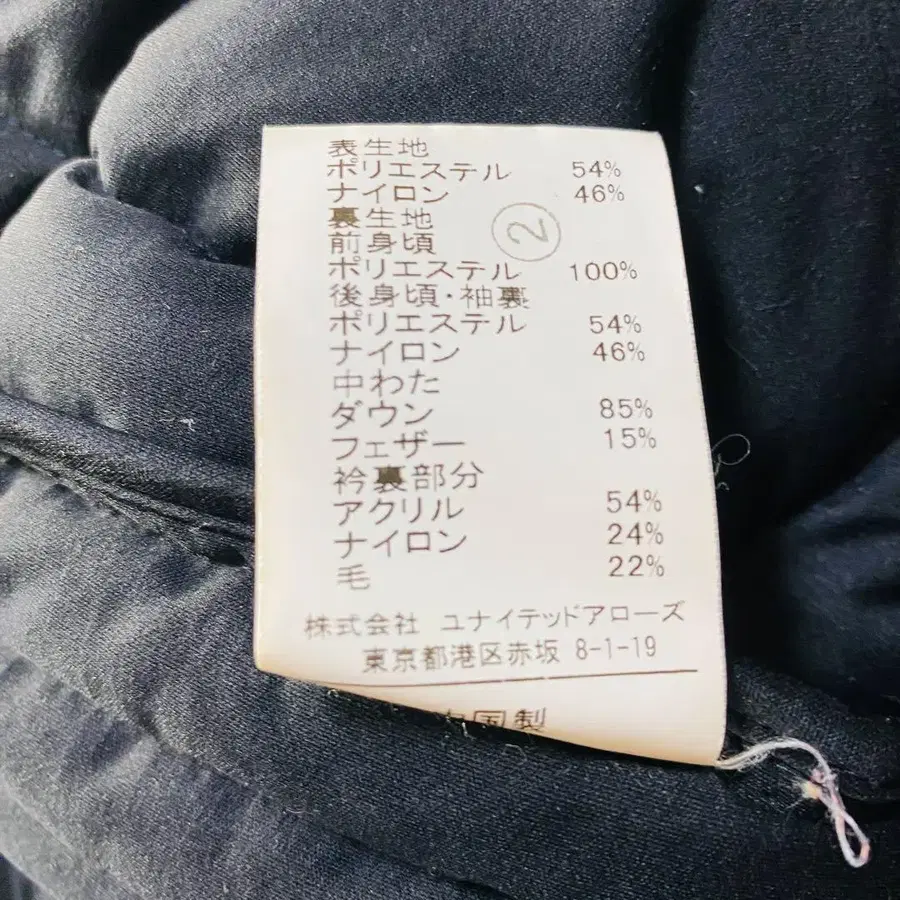 表生地
ポリエステル 54%
ナイロン 46%
裏生地
前身頃 ②
ポリエステル 100%
後身頃・袖裏
ポリエステル 54%
ナイロン 46%
中わた
ダウン 85%
フェザー 15%
衿裏部分
アクリル 54%
ナイロン 24%
毛 22%
株式会社 ユナイテッドアローズ
東京都港区赤坂 8-1-19
中国製